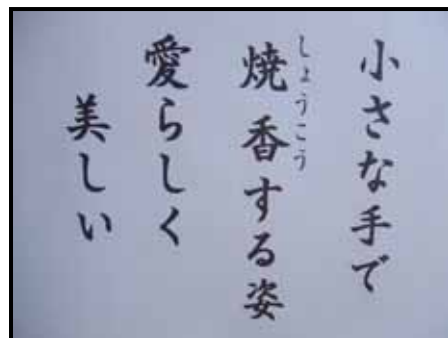 小さな手で
しょうこう
焼香する姿
愛らしく
美しい